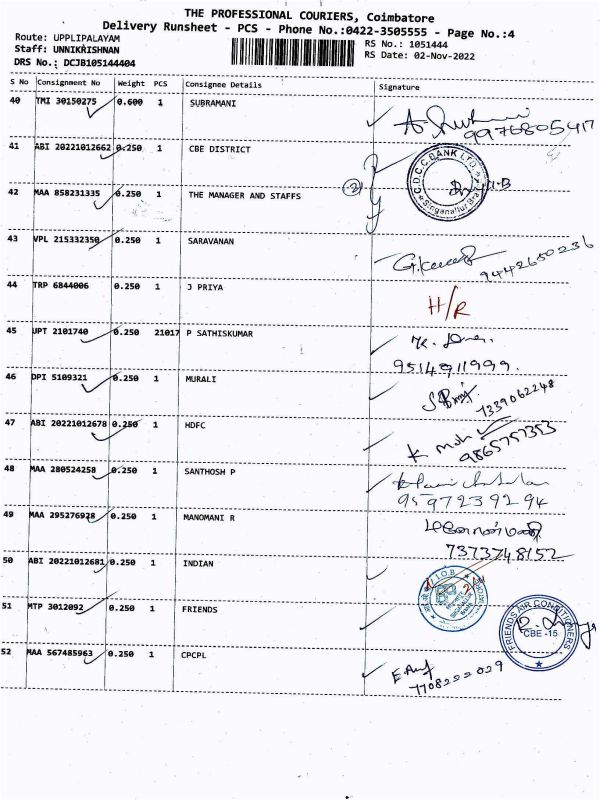 THE PROFESSIONAL COURIERS, Coimbatore
Delivery Runsheet - PCS - Phone No.:0422-3505555 - Page No.:4
Route: UPPLIPALAYAM
Staff: UNNIKRISHNAN
DRS No.: DCJB105144404
RS No.: 1051444
RS Date: 02-Nov-2022
S No Consignment No Weight PCS Consignee Details Signature
40 TMI 30150275 0.600 1 SUBRAMANI
9976805417
41 ABI 20221012662 0.250 1 CBE DISTRICT
C.D.C.C. BANK LTD.
42 MAA 858231335 0.250 1 THE MANAGER AND STAFFS
43 VPL 215332350 0.250 1 SARAVANAN
9442650236
44 TRP 6844006 0.250 1 J PRIYA H/R
45 UPT 2101740 0.250 21017 P SATHISKUMAR
9514911999.
46 DPI 5109321 0.250 1 MURALI
7339062248
47 ABI 20221012678 0.250 1 HDFC
9865757353
48 MAA 280524258 0.250 1 SANTHOSH P
9597239294
49 MAA 295276928 0.250 1 MANOMANI R
7373748152
50 ABI 20221012681 0.250 1 INDIAN
IOB
51 MTP 3012092 0.250 1 FRIENDS
FRIENDS AIR CONDITIONERS
CBE -15
52 MAA 567485963 0.250 1 CPCPL
7708222029